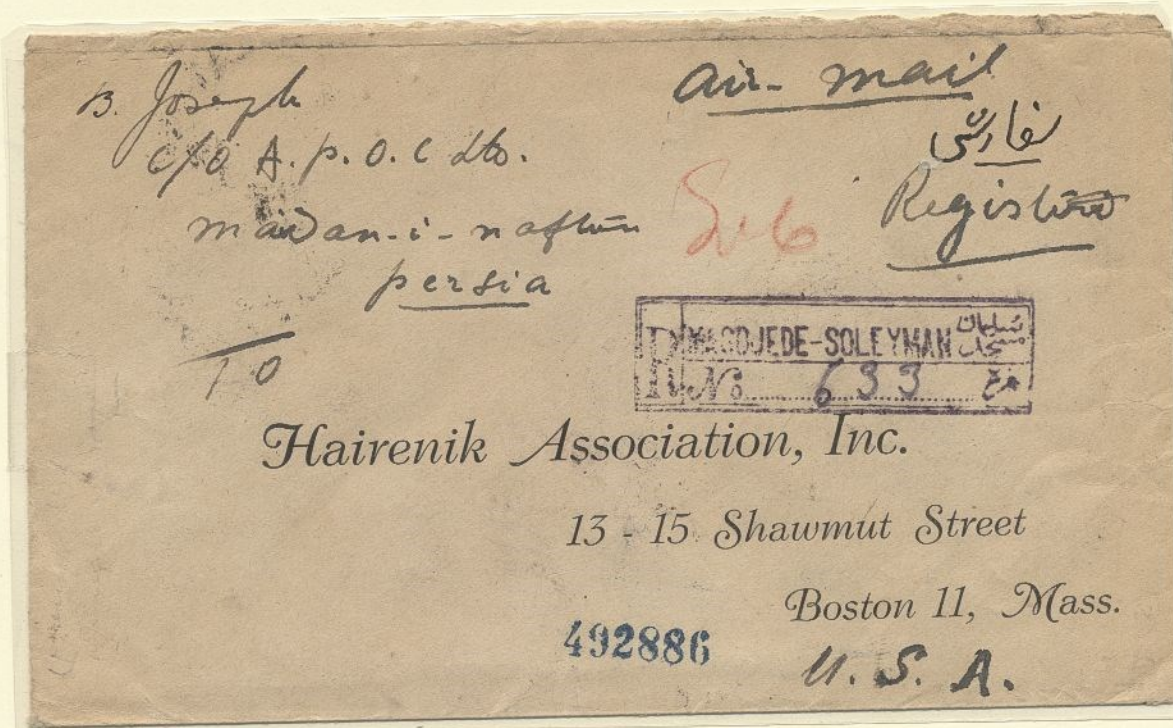 B. Joseph
c/o A.P.O.C Ltd.
Maidan-i-naftun
Persia
To
Air-mail
سفارشی
Registered
R MASDJEDE-SOLEYMAN مسجد سلیمان
No 633
Hairenik Association, Inc.
13 - 15 Shawmut Street
Boston 11, Mass.
U. S. A.
492886